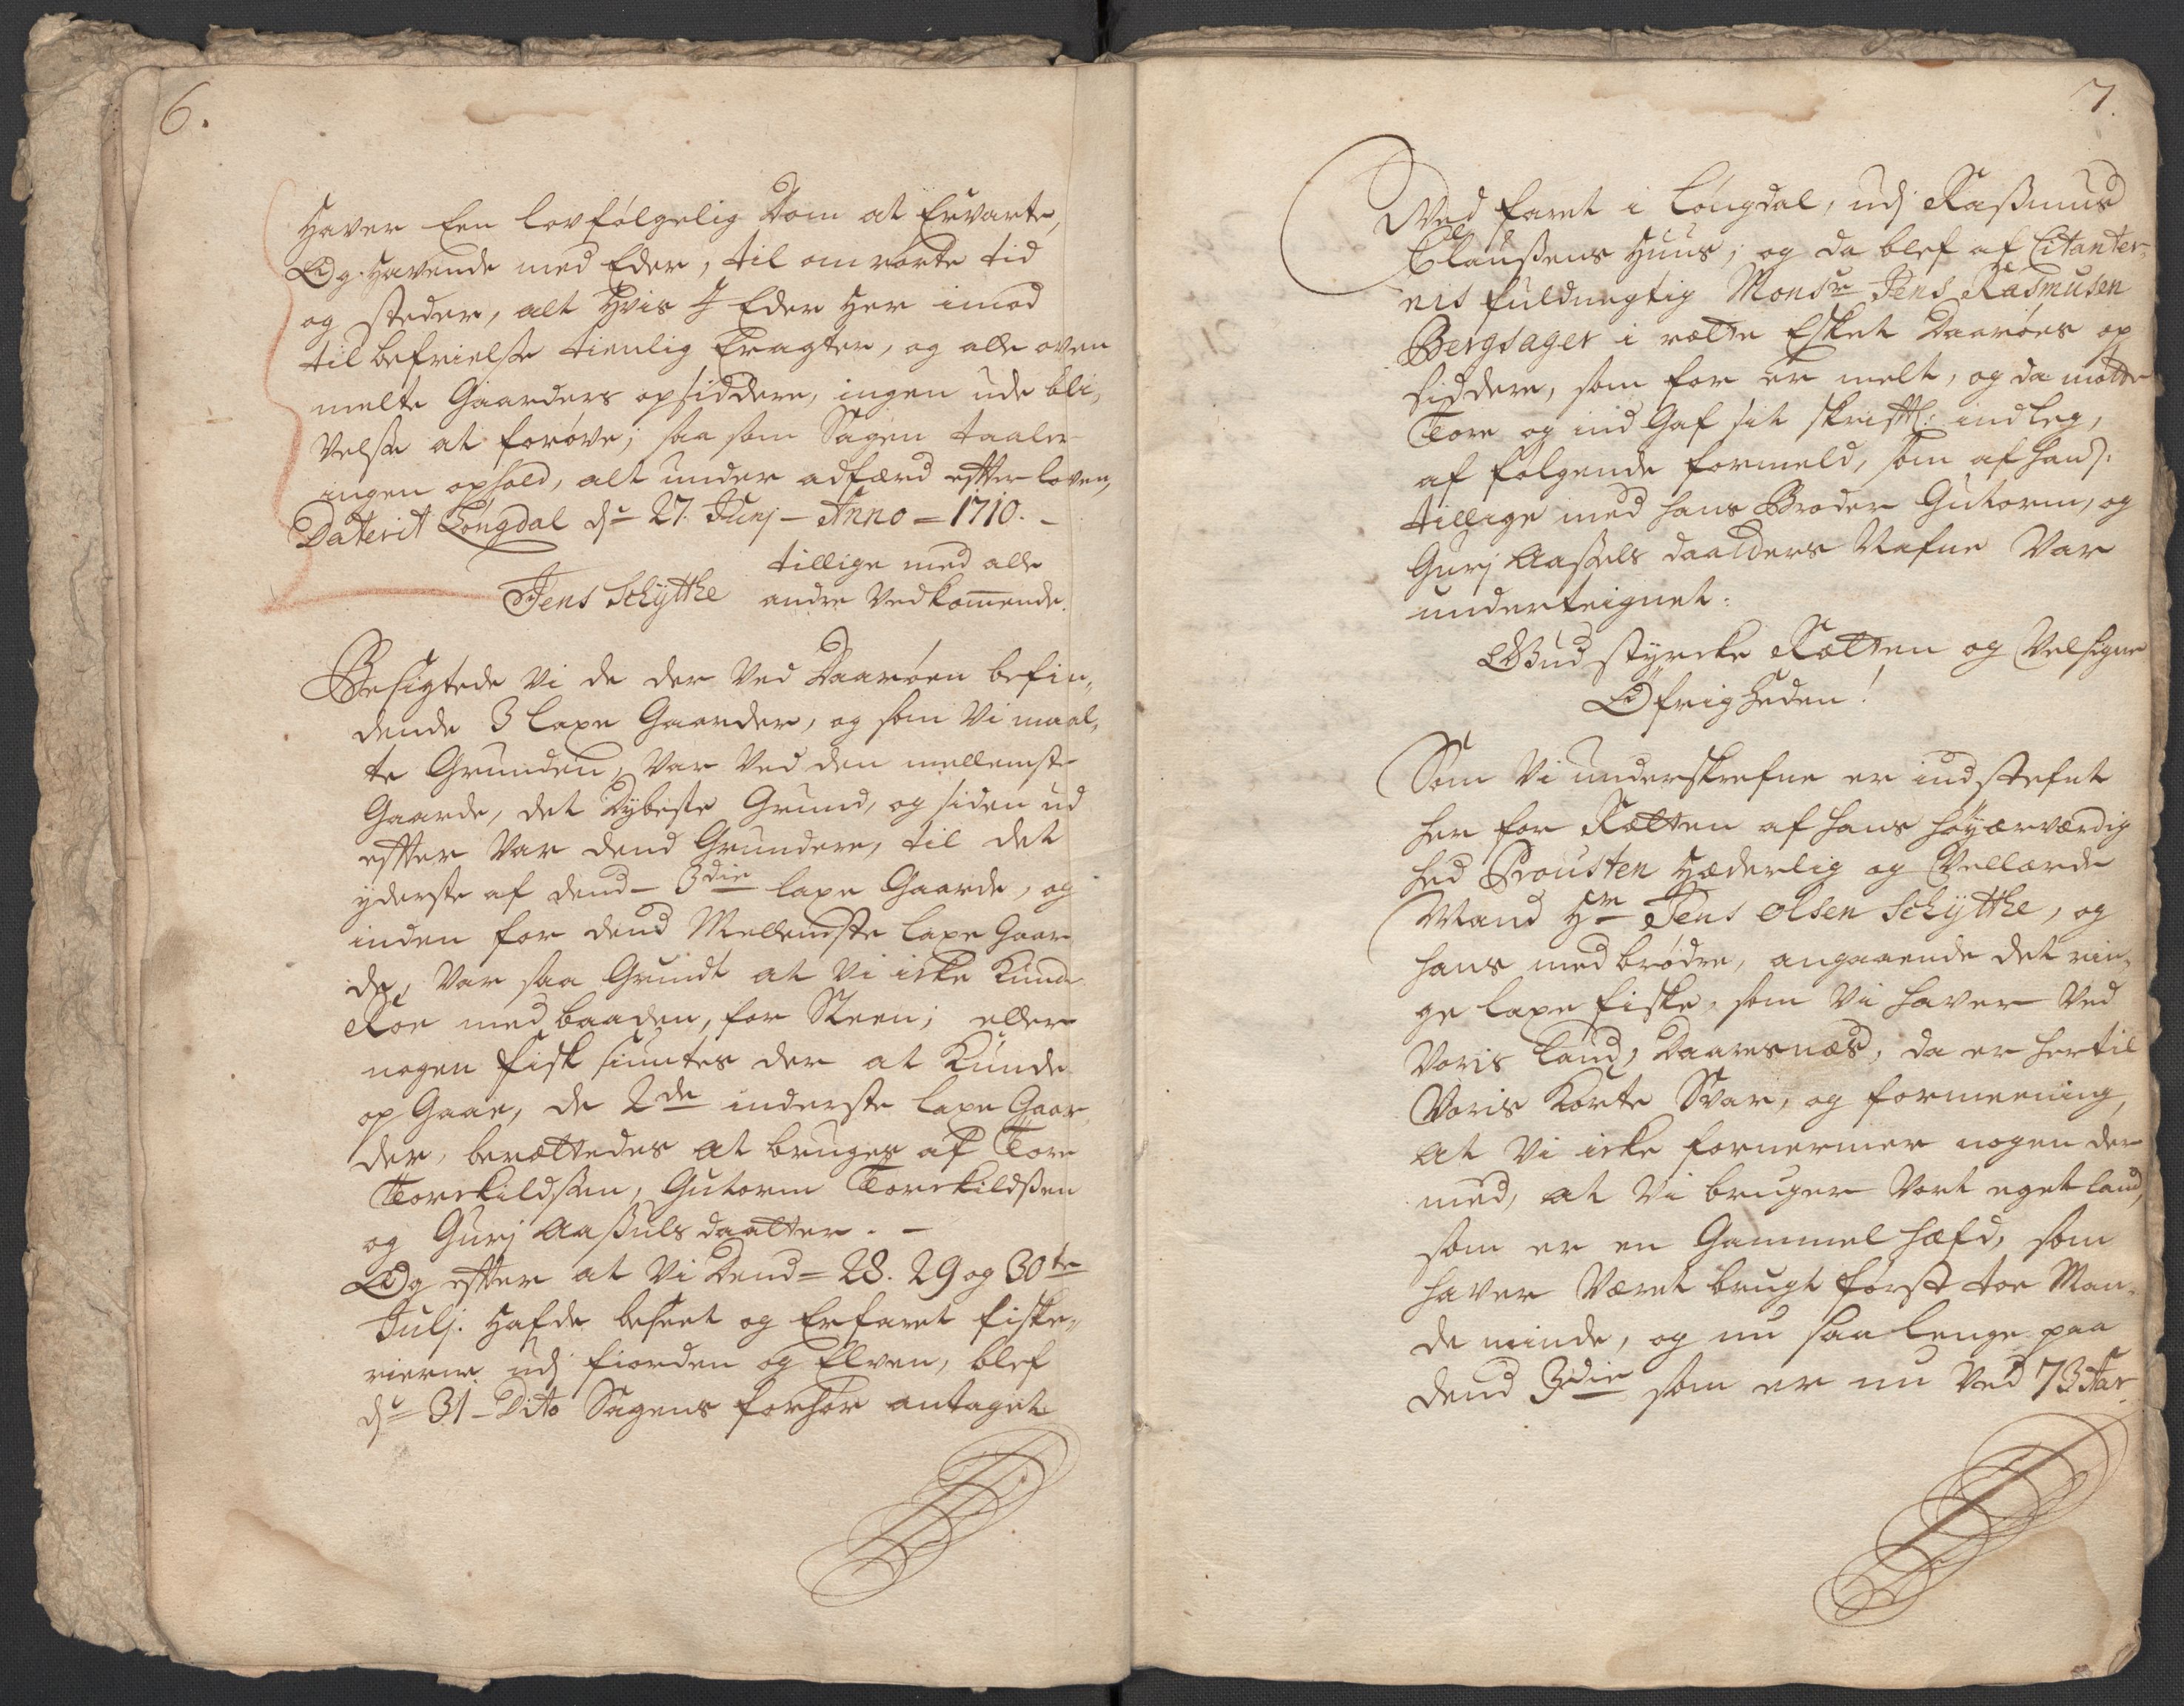 6.
Haver Een lovfølgelig Dom at Ervarte,
Og. Havende med Eder, til omrørte tid
og steder, alt Hvis I Eder Her imod
til befrielse tienlig Eragter, og alle oven
melte Gaarders opsiddere, ingen ude bli,
velse at forøve, saa som Sagen taaler
ingen ophold, alt under adfærd efter loven,
Daterit Lougdal d. 27. Junj - Anno = 1710. -
tillige med alle
Jens Schytthe andre Vedkommende.
Besigtede Vi de der Ved Daarøen befin,
dende 3 laxe Gaarder, og som Vi maal,
te Grunden, Var Ved den mellemste
Gaarde, det Dybeste Grund, og siden ud
efter Var dend Grundere, til det
yderste af dend - 3die laxe Gaarde, og
inden for dend Mellemste laxe Gaar
de, Var saa Grundt at Vi icke Kunde
Roe med baaden, for Steen; eller
nogen fisk siuntes der at Kunde
op Gaae, de 2de inderste laxe Gaar
der, berættedes at bruges af Tore
Torckildssen, Gutorm Torckildssen
og Gurj Aassuls daatter. -
Og efter at Vi Dend = 28. 29 og 30te
Julj. Hafde beseet og Erfaret fiske,
rierne udj fiorden og Elven, blef
d. 31 - Dito Sagens forhør antaget
7.
Ved faret i Lougdal, udj Rassmus
Claussens Huus; og da blef af Citanter,
nis fuldmegtig Monsr Jens Rasmusen
Bergsager i rætte Esket Daarøes op
siddere, som før er melt, og da møtte
Tore og ind Gaf sit skriftl: indleg,
af følgende formeld, som af ham,
tillige med hans Broder Gutorm, og
Gurj Aassels daatters Nafne Var
underteignet:
Gud styrcke Rætten og Velsigne
Øfrigheden!
Som Vi underskrefne er indstefnt
her for Rætten af hans høyærværdig
hed Prousten Hæderlig og Vellærde
Mand Hr Jens olsen Schytthe, og
hans med brødre, angaaende det rin,
ge laxe fiske, som Vi haver Ved
Voris land, Daaresnæs, da er hertil
Voris Korte Svar, og formeening,
at Vi icke fornermer nogen der
med, at Vi bruger Vort eget land,
som er en Gammel hæfd, som
haver Været brugt først toe Man,
de minde, og nu saa lenge paa
dend 3die som er nu Ved 73 Aar